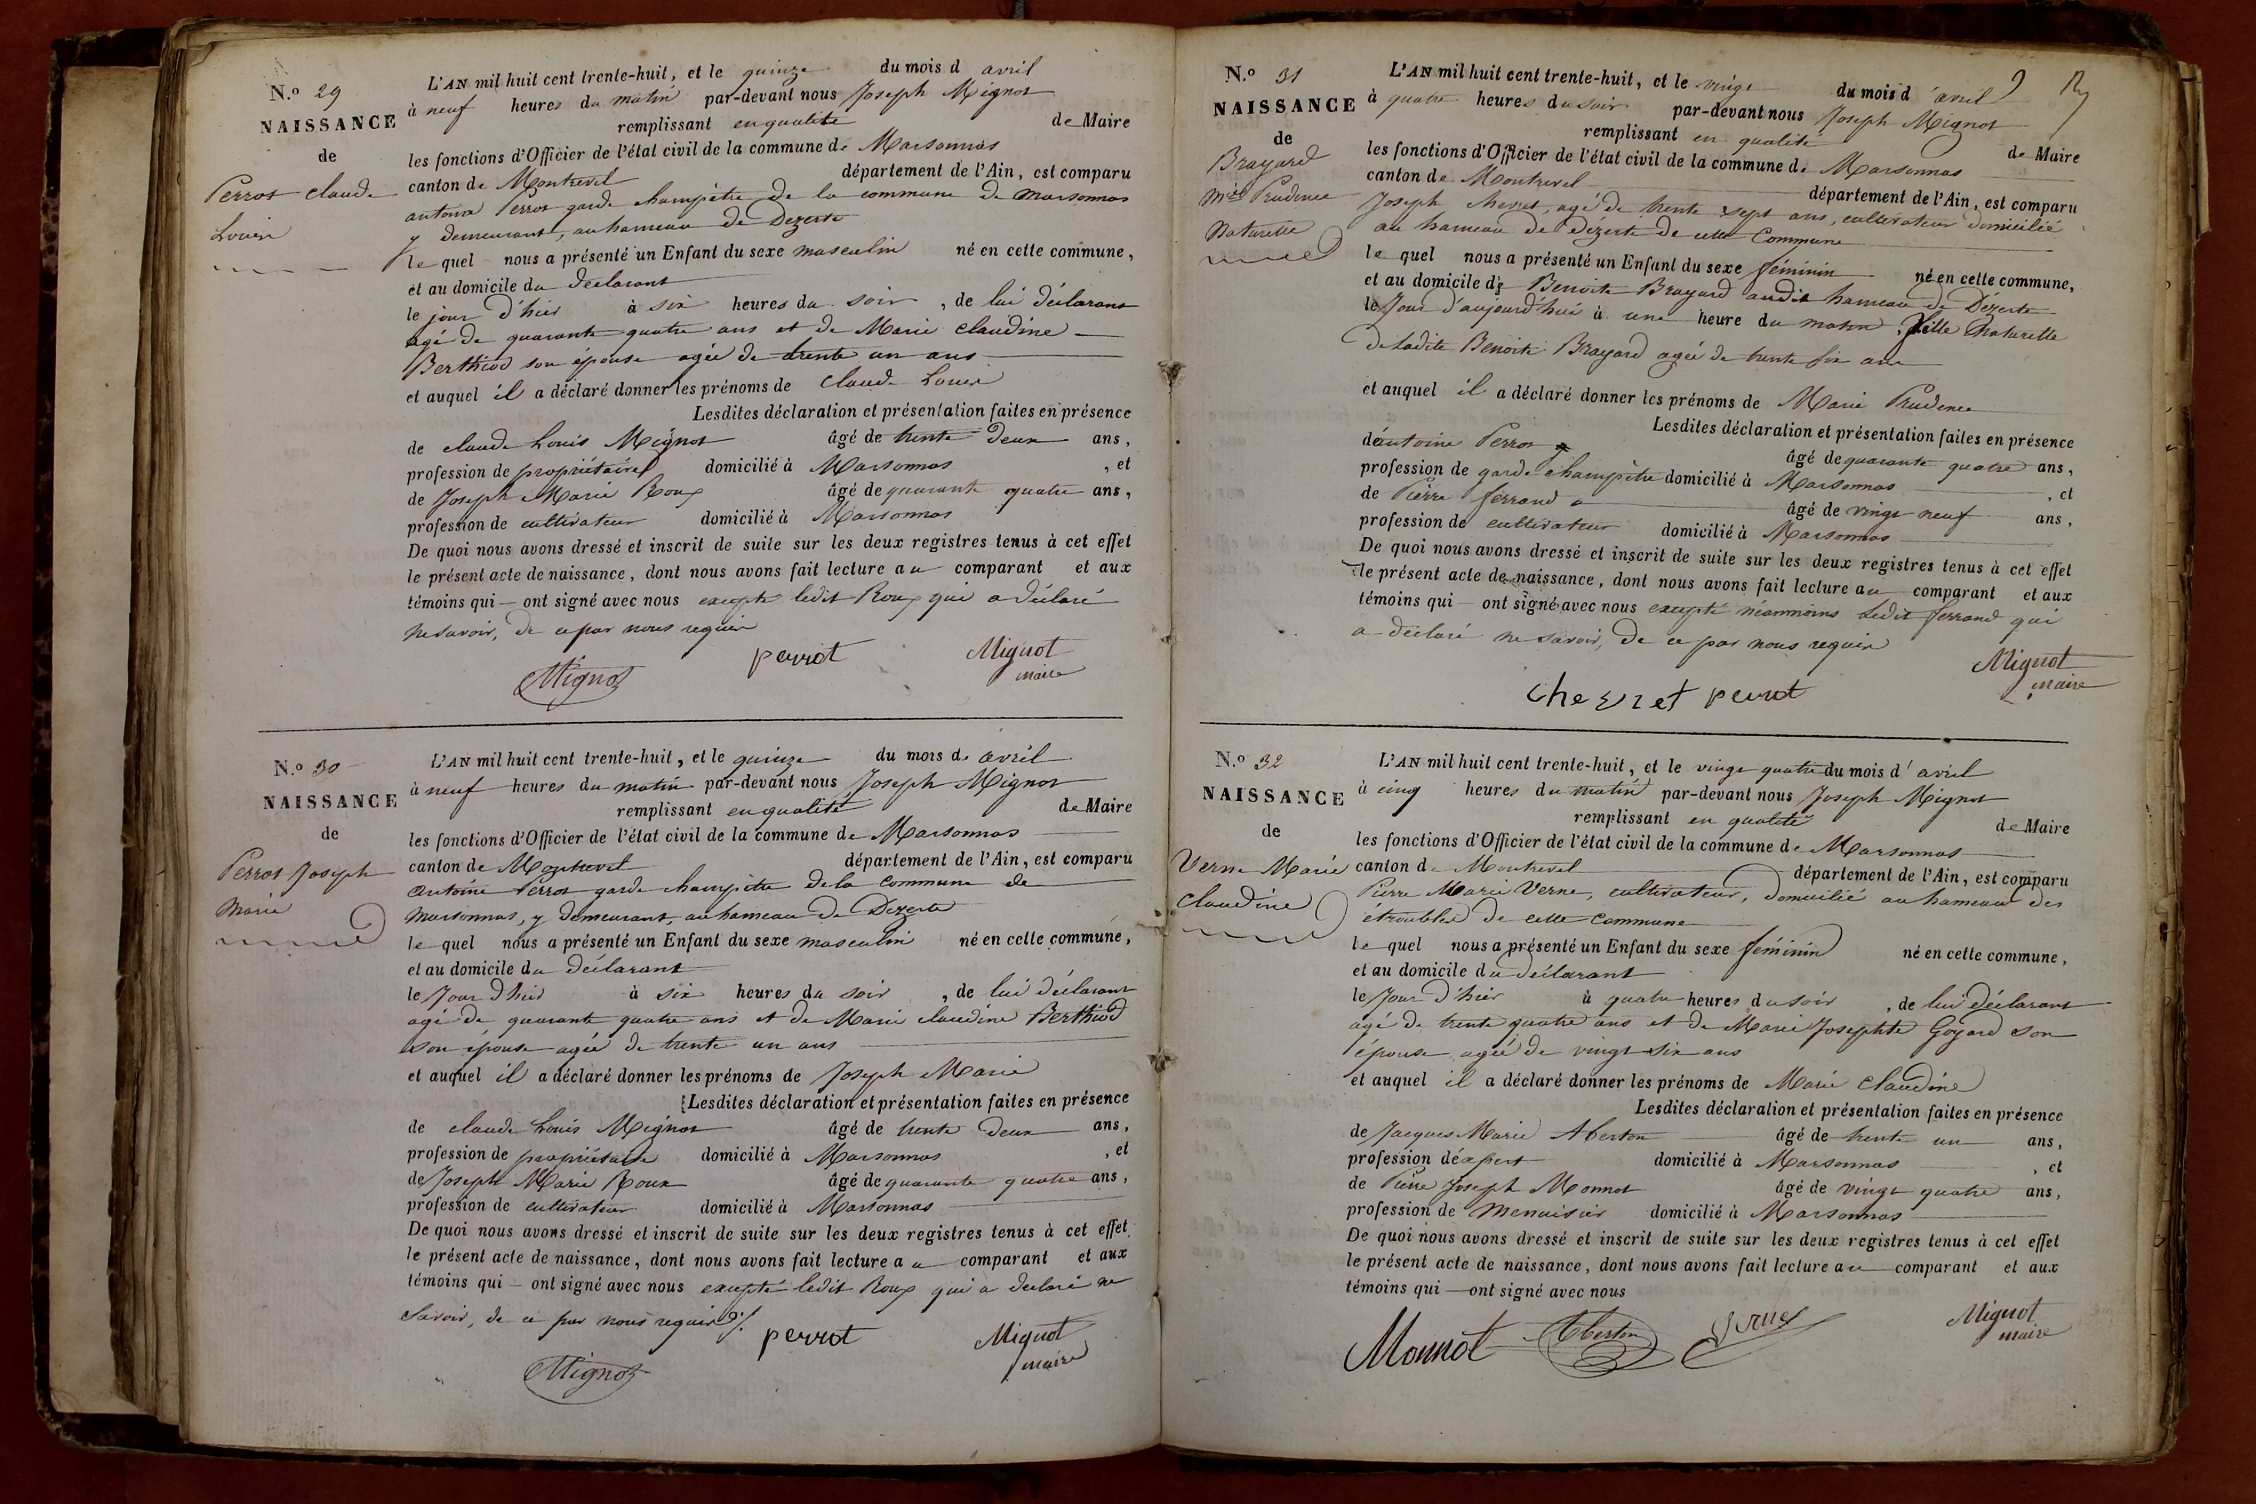 N.º 29
NAISSANCE
de
Perrot Claude
Louis
L'AN mil huit cent trente-huit, et le quinze du mois d avril
à neuf heures du matin par-devant nous Joseph Mignot
remplissant en qualité de Maire
les fonctions d'Officier de l'état civil de la commune de Marsonnas
canton de Montrevel département de l'Ain, est comparu
antoine Perrot garde champêtre de la commune de marsonnas
y demeurant, au hameau de Dezerte
le quel nous a présenté un Enfant du sexe masculin né en cette commune,
et au domicile du déclarant
le jour d'hier à six heures du soir, de lui déclarant
agé de quarante quatre ans et de Marie claudine
Berthiod son épouse agée de trente un ans
et auquel il a déclaré donner les prénoms de Claude Louis
Lesdites déclaration et présentation faites en présence
de claude Louis Mignot âgé de trente deux ans,
profession de propriétaire domicilié à Marsonnas, et
de Joseph Marie Roux âgé de quarante quatre ans,
profession de cultivateur domicilié à Marsonnas
De quoi nous avons dressé et inscrit de suite sur les deux registres tenus à cet effet
le présent acte de naissance, dont nous avons fait lecture au comparant et aux
témoins qui ont signé avec nous excepté ledit Roux qui a déclaré
ne savoir, de ce par nous requis
Mignot perrot Mignot
maire
N.º 30
NAISSANCE
de
Perrot Joseph
Marie
L'AN mil huit cent trente-huit, et le quinze du mois de avril
à neuf heures du matin par-devant nous Joseph Mignot
remplissant en qualité de Maire
les fonctions d'Officier de l'état civil de la commune de Marsonnas
canton de Montrevel département de l'Ain, est comparu
antoine Perrot garde champêtre de la commune de
marsonnas, y demeurant, au hameau de Dezerte
le quel nous a présenté un Enfant du sexe masculin né en cette commune,
et au domicile du déclarant
le Jour d'hier à six heures du soir, de lui déclarant
agé de quarante quatre ans et de Marie claudine Berthiod
son épouse agée de trente un ans
et auquel il a déclaré donner les prénoms de Joseph Marie
Lesdites déclaration et présentation faites en présence
de claude Louis Mignot âgé de trente deux ans,
profession de propriétaire domicilié à Marsonnas, et
de Joseph Marie Roux âgé de quarante quatre ans,
profession de cultivateur domicilié à Marsonnas
De quoi nous avons dressé et inscrit de suite sur les deux registres tenus à cet effet
le présent acte de naissance, dont nous avons fait lecture au comparant et aux
témoins qui ont signé avec nous excepté ledit Roux qui a déclaré ne
savoir, de ce par nous requis
perrot Mignot
Mignot maire
N.º 31
NAISSANCE
de
Brayard
Marie Prudence
Naturelle
L'AN mil huit cent trente-huit, et le vingt du mois d'avril
à quatre heures du soir par-devant nous Joseph Mignot
remplissant en qualité de Maire
les fonctions d'Officier de l'état civil de la commune de Marsonnas
canton de Montrevel département de l'Ain, est comparu
Joseph chevret, agé de trente sept ans, cultivateur domicilié
au hameau de Dézerte de cette Commune
le quel nous a présenté un Enfant du sexe féminin né en cette commune,
et au domicile de Benoite Brayard audit hameau de Dézerte
le Jour d'aujourd'hui à une heure du matin, fille Naturelle
de ladite Benoite Brayard agée de trente six ans
et auquel il a déclaré donner les prénoms de Marie Prudence
Lesdites déclaration et présentation faites en présence
de antoine Perrot âgé de quarante quatre ans,
profession de garde champêtre domicilié à Marsonnas, et
de Pierre ferrand âgé de vingt neuf ans,
profession de cultivateur domicilié à Marsonnas
De quoi nous avons dressé et inscrit de suite sur les deux registres tenus à cet effet
le présent acte de naissance, dont nous avons fait lecture au comparant et aux
témoins qui ont signé avec nous excepté néanmoins ledit ferrand qui
a déclaré ne savoir, de ce par nous requis
chevret perrot Mignot
maire
N.º 32
NAISSANCE
de
Verne Marie
claudine
L'AN mil huit cent trente-huit, et le vingt quatre du mois d'avril
à cinq heures du matin par-devant nous Joseph Mignot
remplissant en qualité de Maire
les fonctions d'Officier de l'état civil de la commune de Marsonnas
canton de Montrevel département de l'Ain, est comparu
Pierre Marie Verne, cultivateur, domicilié au hameau des
étroubles de cette commune
le quel nous a présenté un Enfant du sexe féminin né en cette commune,
et au domicile du déclarant
le Jour d'hier à quatre heures du soir, de lui déclarant
agé de trente quatre ans et de Marie Josephte Goyard son
épouse agée de vingt six ans
et auquel il a déclaré donner les prénoms de Marie Claudine
Lesdites déclaration et présentation faites en présence
de Jacques Marie Aberton âgé de trente un ans,
profession d'expert domicilié à Marsonnas, et
de Pierre Joseph Monnot âgé de vingt quatre ans,
profession de menuisier domicilié à Marsonnas
De quoi nous avons dressé et inscrit de suite sur les deux registres tenus à cet effet
le présent acte de naissance, dont nous avons fait lecture au comparant et aux
témoins qui ont signé avec nous
Monnot Aberton Verne Mignot
maire